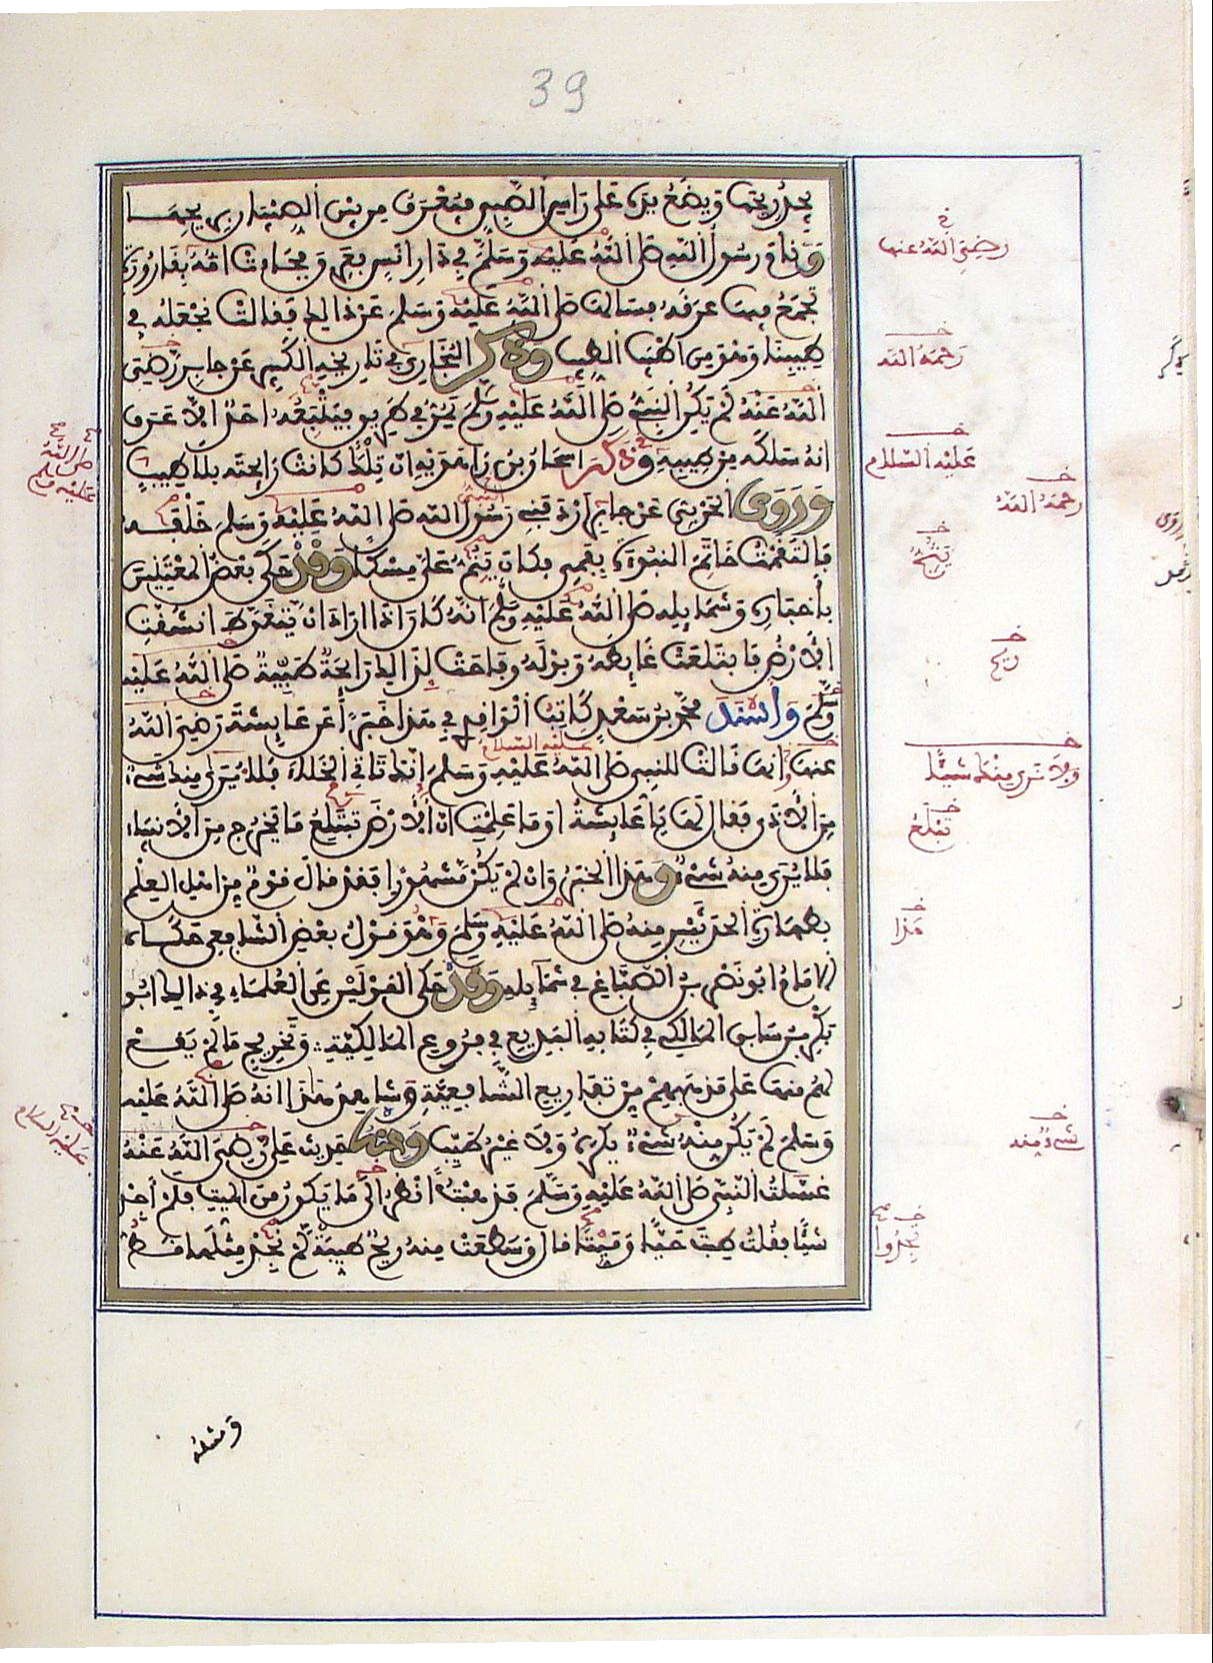 39
يجد ريحها ويضع يده على راس الصبي فيعرف من بين الصبيان بريحها
ونام رسول الله صلى الله عليه وسلم في دار انس فعرق فجاءت امه بقارورة
تجمع فيها عرقه فسالها صلى الله عليه وسلم عن ذالك فقالت نجعله في
طيبنا وهو من اطيب الطيب وذكر البخاري في تاريخه الكبير عن جابر رضي
الله عنه لم يكن النبيء صلى الله عليه وسلم يمر في طريق فيتبعه احد الا عرف
انه سلكه من طيبه وذكر اسحاق بن راهويه ان تلك كانت رايحته بلا طيب
وروى المزني عن جابر اردفني رسول الله صلى الله عليه وسلم خلفه
فالتقمت خاتم النبوة بفمي فكان ينم علي مسكا وقد حكى بعض المعتنين
باخباره وشمايله صلى الله عليه وسلم انه كان اذا اراد ان يتغوط انشقت
الارض فابتلعت غايطه وبوله وفاحت لذالك رايحة طيبة صلى الله عليه
وسلم واسند محمد بن سعد كاتب الواقدي في هذا خبرا عن عايشة رضي الله
عنها انها قالت للنبي صلى الله عليه وسلم انك تاتي الخلاء فلا يرى منك شيء
من الاذى فقال لها يا عايشة اوما علمت ان الارض تبتلع ما يخرج من الانبياء
فلا يرى منه شيء وهذا الخبر وان لم يكن مشهورا فقد قال قوم من اهل العلم
بطهارة الحدثين منه صلى الله عليه وسلم وهو قول بعض الشافعي حكاه
الامام ابو نصر بن الصباغ في شامله وقد حكى القولين عن العلماء في ذالك ابو
بكر بن سابق المالكي في كتابه البديع في فروع المالكية وتخريج ما لم يقع
لهم منها على مذهبهم من تفاريع الشافعية وشاهد هذا انه صلى الله عليه
وسلم لم يكن منه شيء يكره ولا غير طيب ومنه حديث علي رضي الله عنه
غسلت النبي صلى الله عليه وسلم فذهبت انظر الى ما يكون من الميت فلم اجد
شيئا فقلت طبت حيا وميتا قال وسطعت منه ريح طيبة لم نجد مثلها قط
رضي الله عنها
رحمه الله
عليه السلام
رحمه الله
ينث
ريح
ولا نرى منك شيئا
تبلع
هذا
شيء منه
يجدوا
صلى الله
عليه وسلم
عليه السلام
ومثله